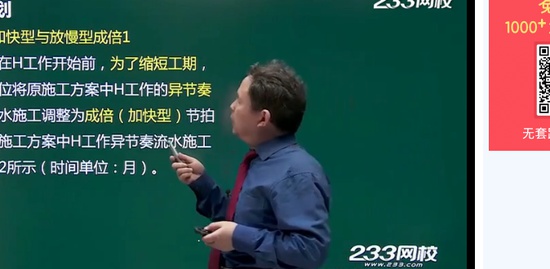 划
233网校
加快型与放慢型成倍1
在H工作开始前，为了缩短工期，
位将原施工方案中H工作的异节奏
水施工调整为成倍（加快型）节拍
施工方案中H工作异节奏流水施工
2所示（时间单位：月）。
233网校
www.233.com
1000+
无套